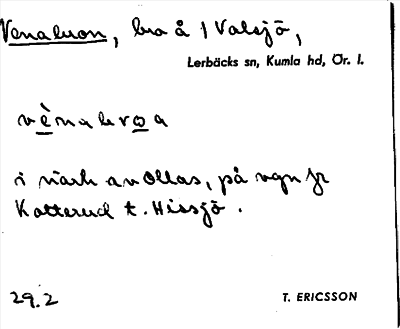 Venabron, bro å / Valsjö,
Lerbäcks sn, Kumla hd, Ör. l.
vènabroa
i närh av Ollas, på vgn fr
Katterud t. Hissjö.
29.2
T. ERICSSON